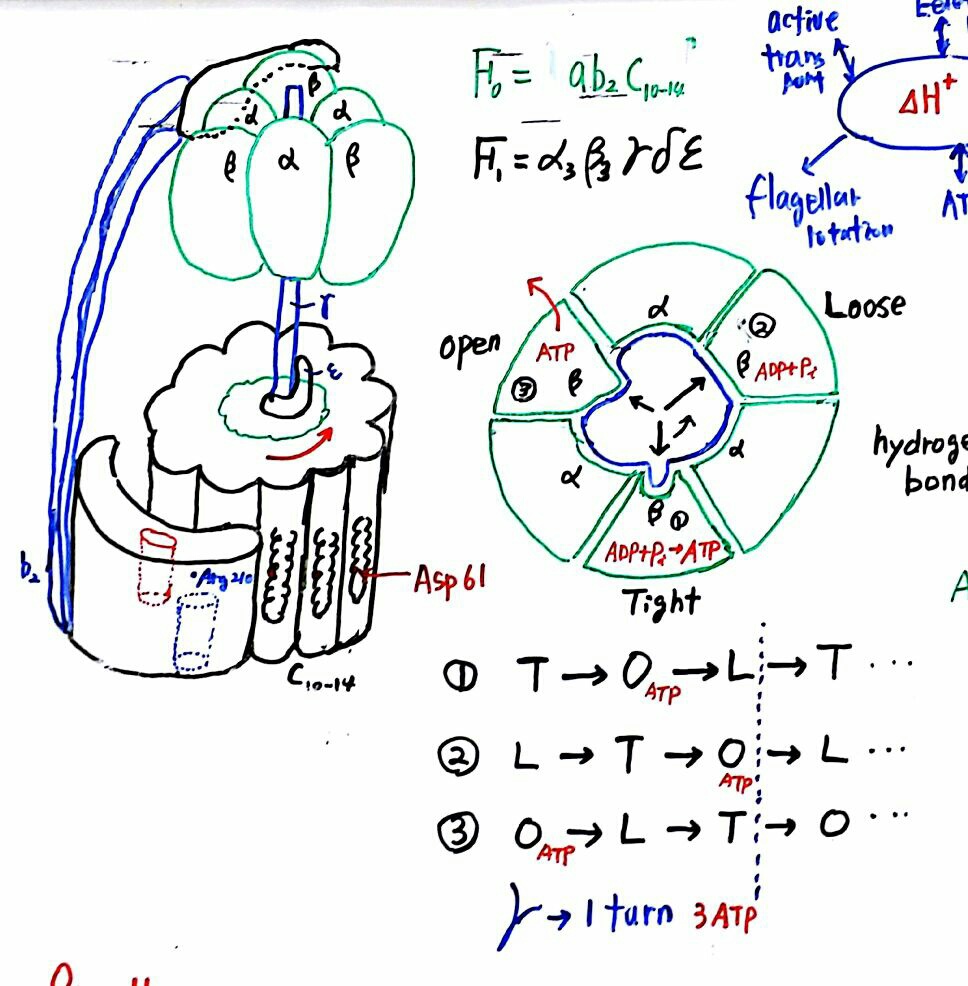 F₀ = ab₂C₁₀₋₁₄
F₁ = α₃β₃γδε
active
trans
port
ΔH⁺
flagellar
rotation
AT
β
α
α
β
α
β
γ
ε
b₂
Arg 210
Asp 61
C₁₀₋₁₄
open
Loose
α
ATP
③ β
②
β ADP+Pᵢ
α
α
β ①
ADP+Pᵢ→ATP
Tight
hydroge
bond
① T → O ATP → L → T ...
② L → T → O ATP → L ...
③ O ATP → L → T → O ...
γ → 1 turn 3 ATP